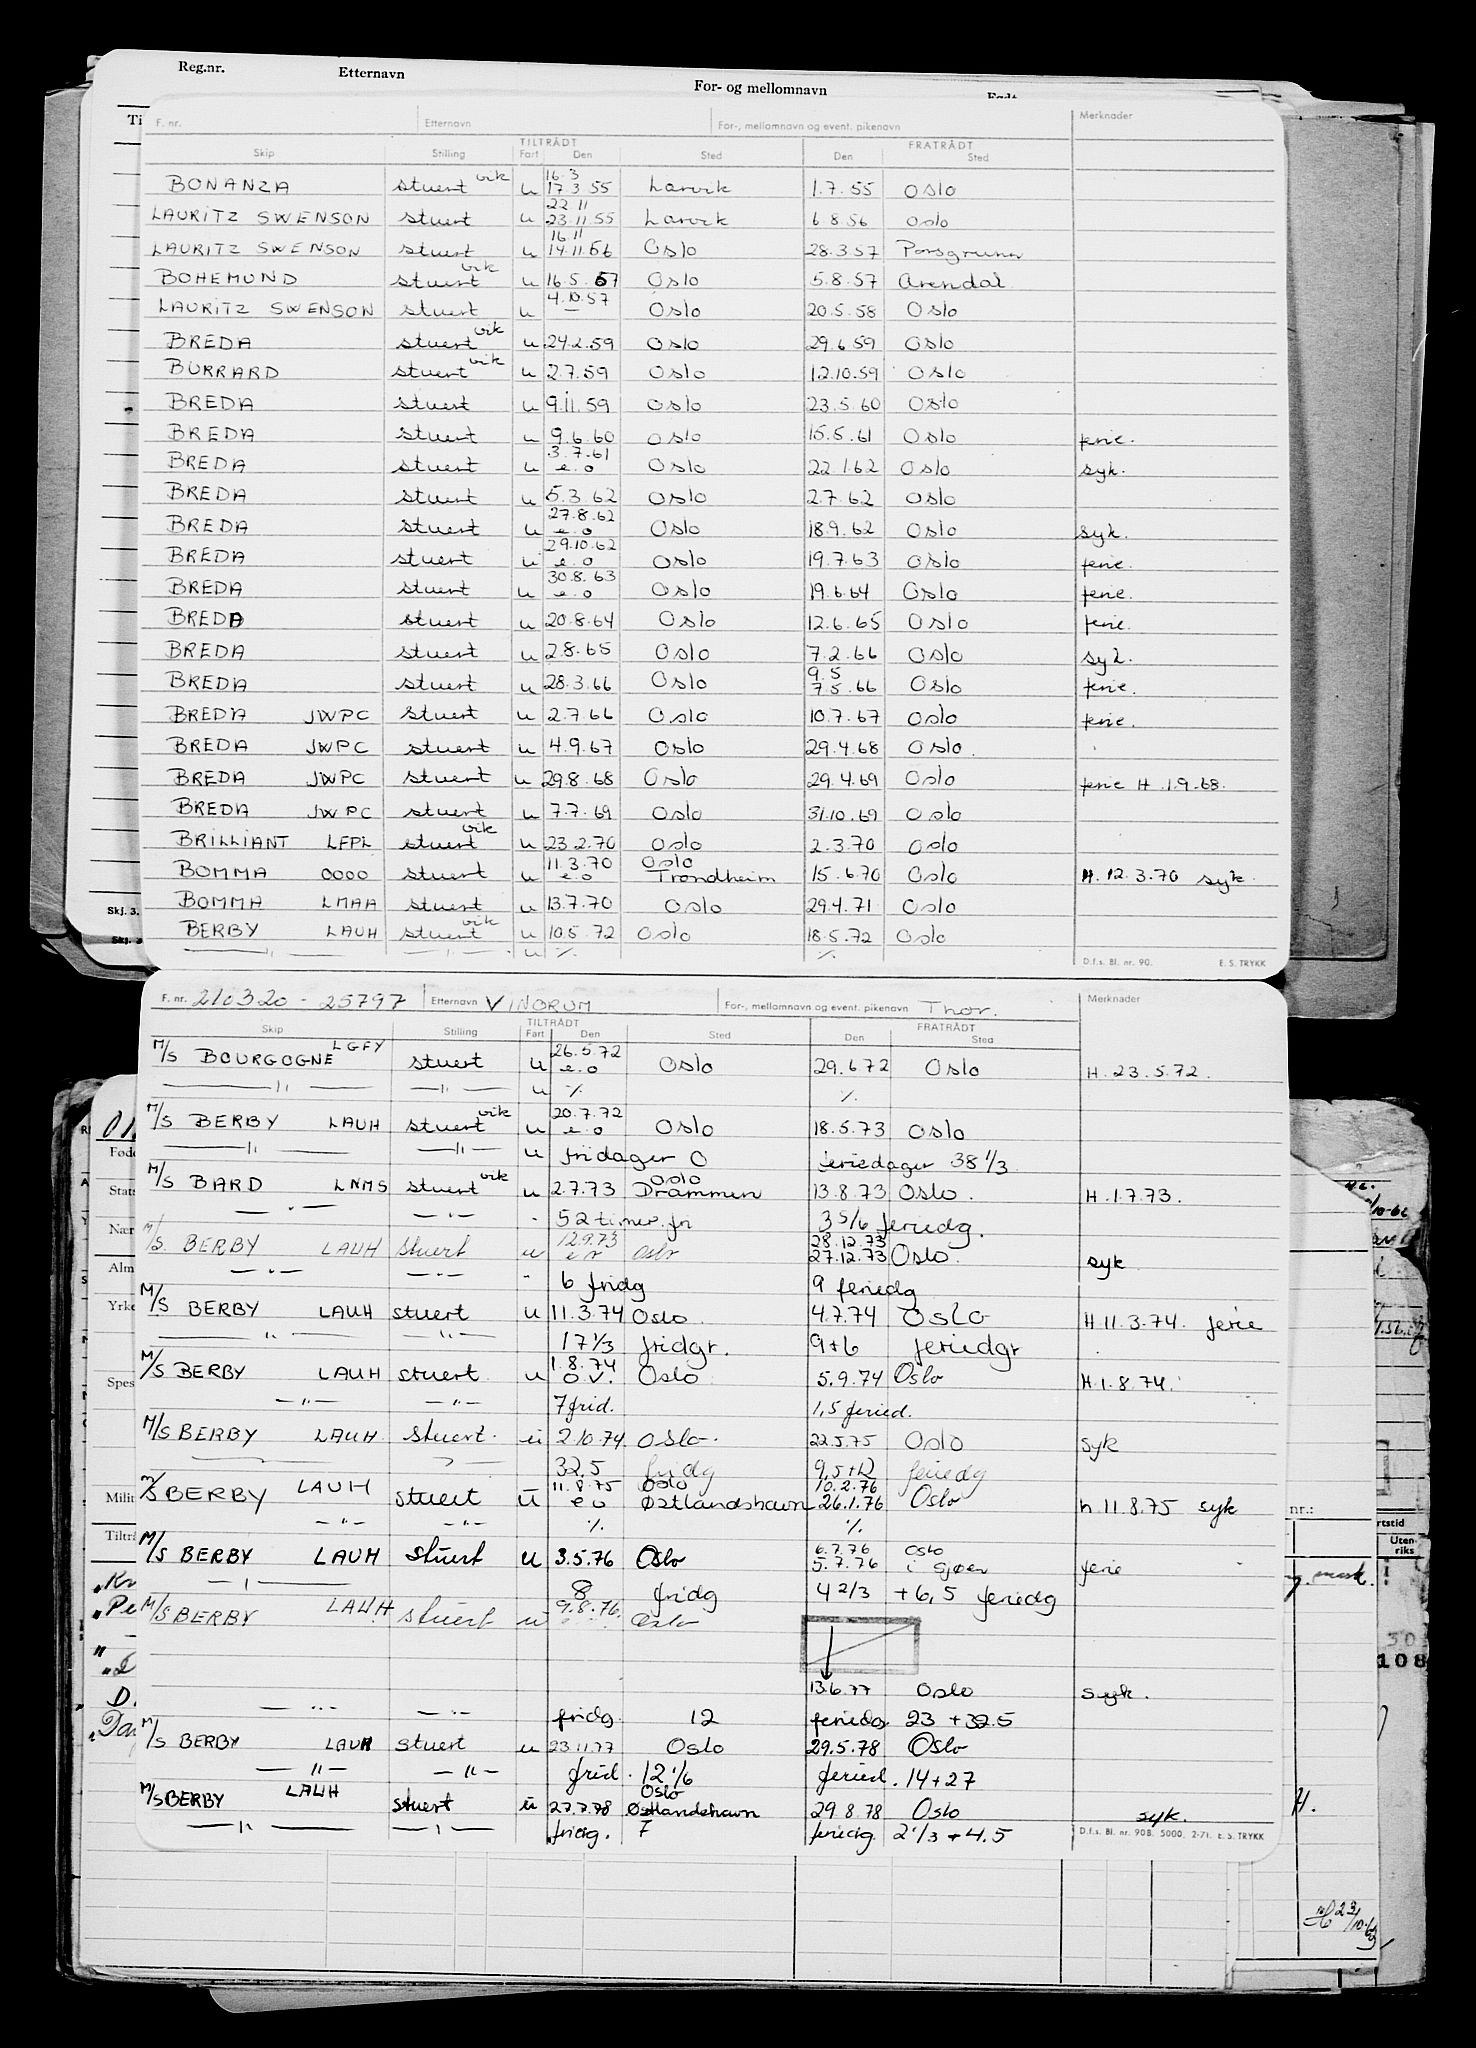 Reg.nr. Etternavn For- og mellomnavn Født
F. nr. Etternavn For-, mellomnavn og event. pikenavn Merknader
TILTRÅDT FRATRÅDT
Skip Stilling Fart Den Sted Den Sted
BONANZA stuert vik u 16.3 17.3.55 Larvik 1.7.55 Oslo
LAURITZ SWENSON stuert u 22.11 23.11.55 Larvik 6.8.56 Oslo
LAURITZ SWENSON stuert u 16.11 14.11.56 Oslo 28.3.57 Porsgrunn
BOHEMUND stuert vik u 16.5.57 Oslo 5.8.57 Arendal
LAURITZ SWENSON stuert u 4.10.57 — Oslo 20.5.58 Oslo
BREDA stuert vik u 24.2.59 Oslo 29.6.59 Oslo
BURRARD stuert vik u 2.7.59 Oslo 12.10.59 Oslo
BREDA stuert u 9.11.59 Oslo 23.5.60 Oslo
BREDA stuert u 9.6.60 Oslo 15.5.61 Oslo ferie.
BREDA stuert u 3.7.61 e.o Oslo 22.1.62 Oslo syk.
BREDA stuert u 5.3.62 Oslo 2.7.62 Oslo
BREDA stuert u 27.8.62 e.o Oslo 18.9.62 Oslo syk.
BREDA stuert u 29.10.62 e.o Oslo 19.7.63 Oslo ferie.
BREDA stuert u 30.8.63 e.o Oslo 19.6.64 Oslo ferie.
BREDA stuert u 20.8.64 Oslo 12.6.65 Oslo ferie.
BREDA stuert u 2.8.65 Oslo 7.2.66 Oslo syk.
BREDA stuert u 28.3.66 Oslo 9.5 7.5.66 Oslo ferie.
BREDA JWPC stuert u 2.7.66 Oslo 10.7.67 Oslo ferie.
BREDA JWPC stuert u 4.9.67 Oslo 29.4.68 Oslo.
BREDA JWPC stuert u 29.8.68 Oslo 29.4.69 Oslo ferie H .1.9.68.
BREDA JWPC stuert u 7.7.69 Oslo 31.10.69 Oslo
BRILLIANT LFPL stuert vik u 23.2.70 Oslo 2.3.70 Oslo
BOMMA OOOO stuert u 11.3.70 e.o Oslo Trondheim 15.6.70 Oslo H. 12.3.70 syk.
BOMMA LMAA stuert u 13.7.70 Oslo 29.4.71 Oslo
BERBY LAUH stuert vik u 10.5.72 Oslo 18.5.72 Oslo
—"— —"— u ·/. ·/.
D.f.s. Bl. nr. 90. E. S. TRYKK
F. nr. 210320 - 25797 Etternavn VINDRUM For-, mellomnavn og event. pikenavn Thor. Merknader
TILTRÅDT FRATRÅDT
Skip Stilling Fart Den Sted Den Sted
M/S BOURGOGNE LGFY stuert u 26.5.72 e.o Oslo 29.6.72 Oslo H. 23.5.72.
—"— —"— u ·/. ·/.
M/S BERBY LAUH stuert vik u 20.7.72 e.o Oslo 18.5.73 Oslo
—"— —"— u fridager 0 feriedager 38 1/3
M/S BARD LNMS stuert vik u 2.7.73 Oslo Drammen 13.8.73 Oslo. H.1.7.73.
—"— —"— 52 timer fri 3 5/6 feriedg.
M/S. BERBY LAUH stuert u 12.9.73 Oslo 28.12.73 27.12.73 Oslo. syk
—"— —"— 6 fridg 9 feriedg
M/S BERBY LAUH stuert u 11.3.74 Oslo. 4.7.74 Oslo H.11.3.74. ferie
—"— —"— 17 1/3 fridgr. 9+6 feriedgr
M/S BERBY LAUH stuert. u 1.8.74 o.v. Oslo 5.9.74 Oslo H.1.8.74.
—"— —"— 7 frid. 1,5 feried.
M/S BERBY LAUH. stuert. u 2.10.74 Oslo. 22.5.75 Oslo syk
32,5 fridg 9,5+12 feriedg
M/S BERBY LAUH stuert u 11.8.75 e o Oslo Østlandshavn 10.2.76 26.1.76 Oslo h 11.8.75 syk
—"— —"— ·/. ·/.
M/S BERBY LAUH stuert u 3.5.76 Oslo 6.7.76 5.7.76 Oslo i gjøen ferie
8 fridg 4 2/3 + 6,5 feriedg
M/S BERBY LAUH stuert u 9.8.76. Oslo
13.6.77 Oslo syk.
—"— —"— fridg. 12 feriedg. 23 + 32.5
M/S BERBY LAUH stuert u 23.11.77 Oslo 29.5.78 Oslo
—"— —"— frid. 12 1/6 feried. 14+27
M/S BERBY LAUH stuert u 27.7.78 Oslo Østlandshavn 29.8.78 Oslo syk.
—"— —"— fridg. 7 feriedg 2 1/3 + 4.5
D.f.s. Bl. nr. 90B. 5000. 2-71. E. S. TRYKK
Skj. 3.
Skj. 3
Yrke
nr.:
Uten-
riks
108
H.